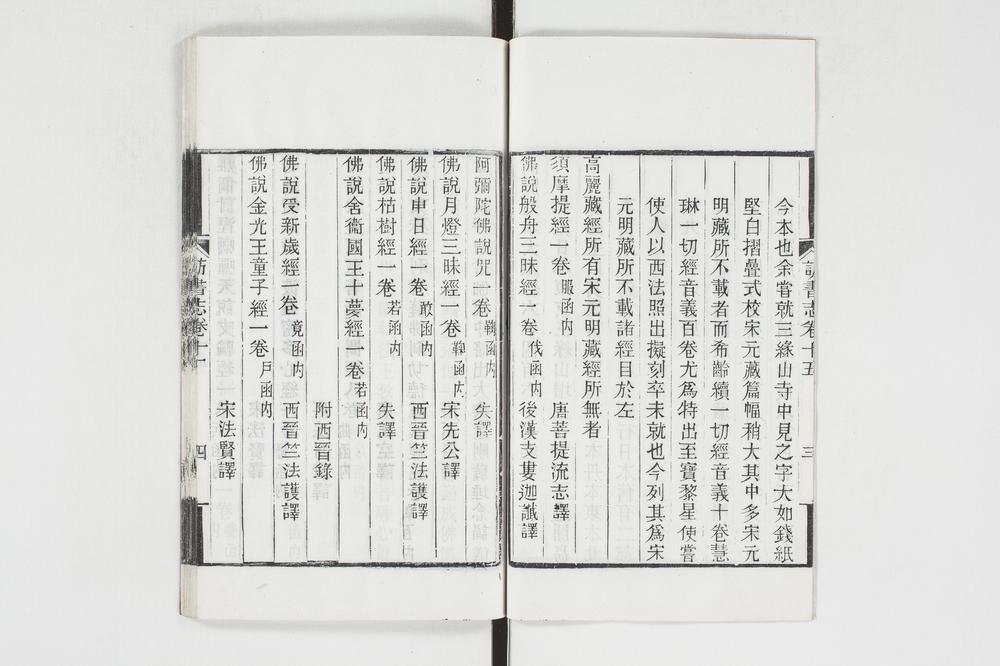 今本也余嘗就三緣山寺中見之字大如錢紙
堅白摺疊式校宋元藏篇幅稍大其中多宋元
明藏所不載者而希齡續一切經音義十卷慧
琳一切經音義百卷尤爲特出至寶黎星使嘗
使人以西法照出擬刻卒未就也今列其爲宋
元明藏所不載諸經目於左
高麗藏經所有宋元明藏經所無者
須摩提經一卷 服函內 唐菩提流志譯
佛說般舟三昧經一卷 伐函內 後漢支婁迦讖譯
訪書志卷十五 三
阿彌陀佛說咒一卷 鞠函內 失譯
佛說月燈三昧經一卷 鞠函內 宋先公譯
佛說申日經一卷 敢函內 西晉竺法護譯
佛說枯樹經一卷 若函內 失譯
佛說舍衞國王十夢經一卷 若函內
附西晉錄
佛說受新歲經一卷 竟函內 西晉竺法護譯
佛說金光王童子經一卷 戸函內 宋法賢譯
訪書志卷十 四